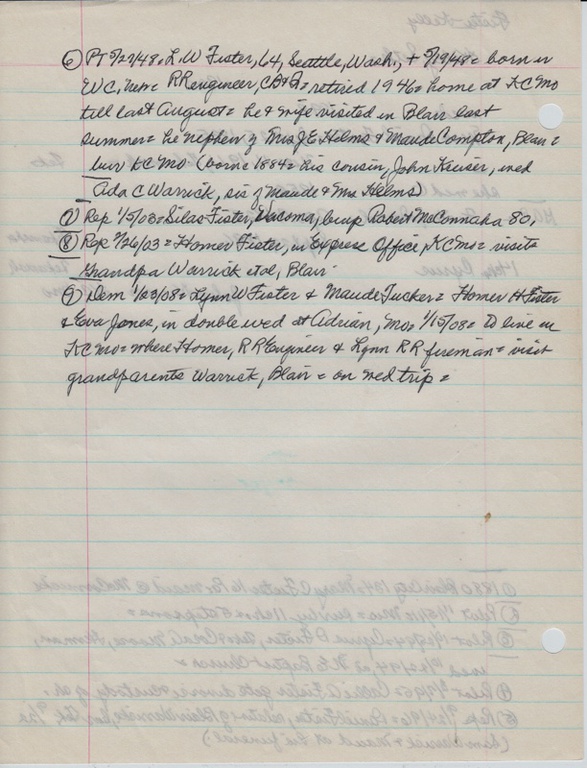 ⑥ PT 5/27/48 = L.W Fister, 64, Seattle, Wash., + 5/19/48 = born in
WC, Neb = RR engineer, CB&Q = retired 1946 = home at KC Mo
till last August = he & wife visited in Blair last
summer = he nephew of Mrs J E Helms & Maude Compton, Blair =
bur KC Mo (born = 1884 = his cousin, John Keiser, wed
Ada C Warrick, sis of Maude & Mrs Helms)
⑦ Rep 1/5/03 = Silas Fister, Tacoma, buys Robert McConnaha 80.
⑧ Rep 7/26/03 = Homer Fister, in Express Office, KC Mo = visits
grandpa Warrick etal, Blair.
⑨ Dem 1/23/08 = Lynn W Fister & Maude Tucker = Homer H Fister
& Eva Jones, in double wed at Adrian, Mo = 1/15/08 = to live in
KC Mo = where Homer, RR Engineer & Lynn RR fireman = visit
grandparents Warrick, Blair = on wed trip =